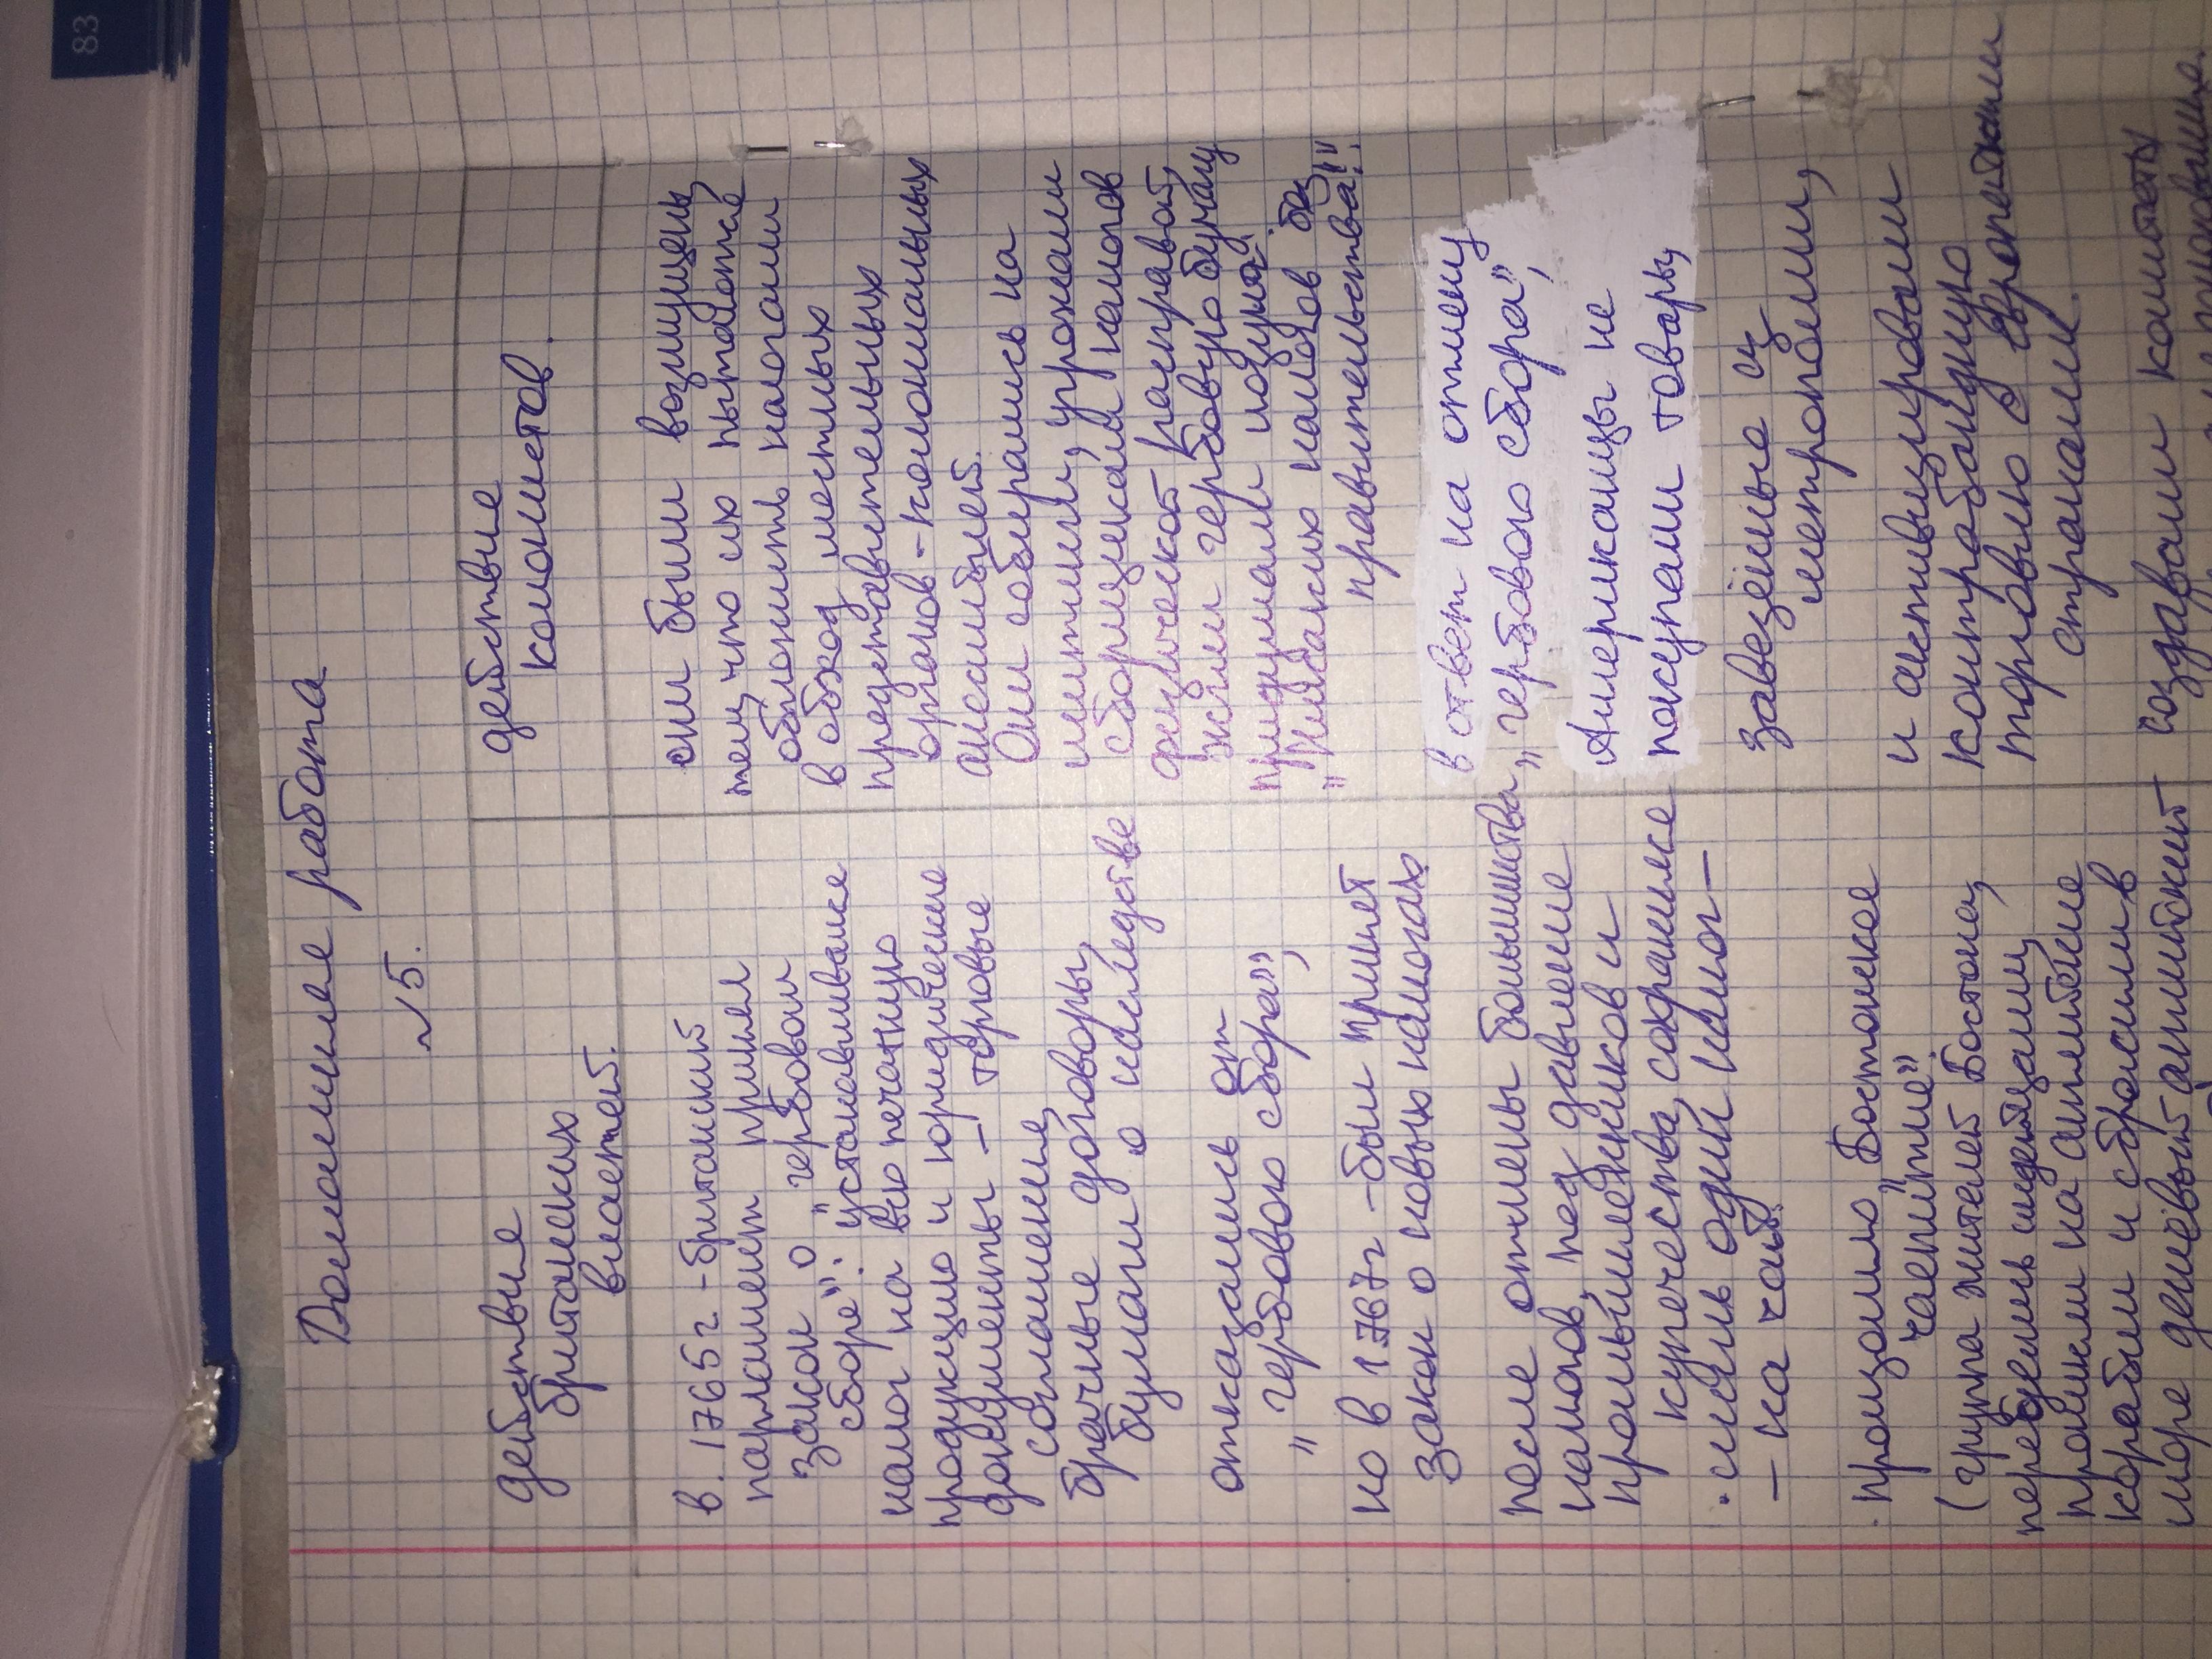 83
Домашняя работа
№5.
действие
британских
властей.
в. 1765 г. - британский
парламент принял
закон о „гербовом
сборе": устанавливался
налог на всю печатную
продукцию и юридические
документы - торговые
соглашения,
брачные договоры,
бумаги о наследстве
отказались от
„гербового сбора",
но в 1767г - был принят
закон о новых налогах
после отмены большинства
налогов, под давлением
промышленников и
купечества, сохранился
лишь один налог -
- на чай.
· произошло „Бостонское
чаепитие".
(группа жителей Бостона,
переоделись индейцами,
проникли на английские
корабли и сбросили в
море дешёвый английский
действие
колонистов.
они были возмущены
тем, что их пытаются
обложить налогами
в обход местных
представительных
органов - колониальных
ассамблей.
Они собирались на
митинги, угрожали
сборщикам налогов
физической расправой,
жгли гербовую бумагу
придумали лозунг:
„Никаких налогов без
правительства!"
в ответ на отмену
„гербового сбора",
Американцы не
покупали товары,
завезёные из
метрополии,
и активизировали
контрабандную
торговлю с европейскими
странами.
создавали комитеты